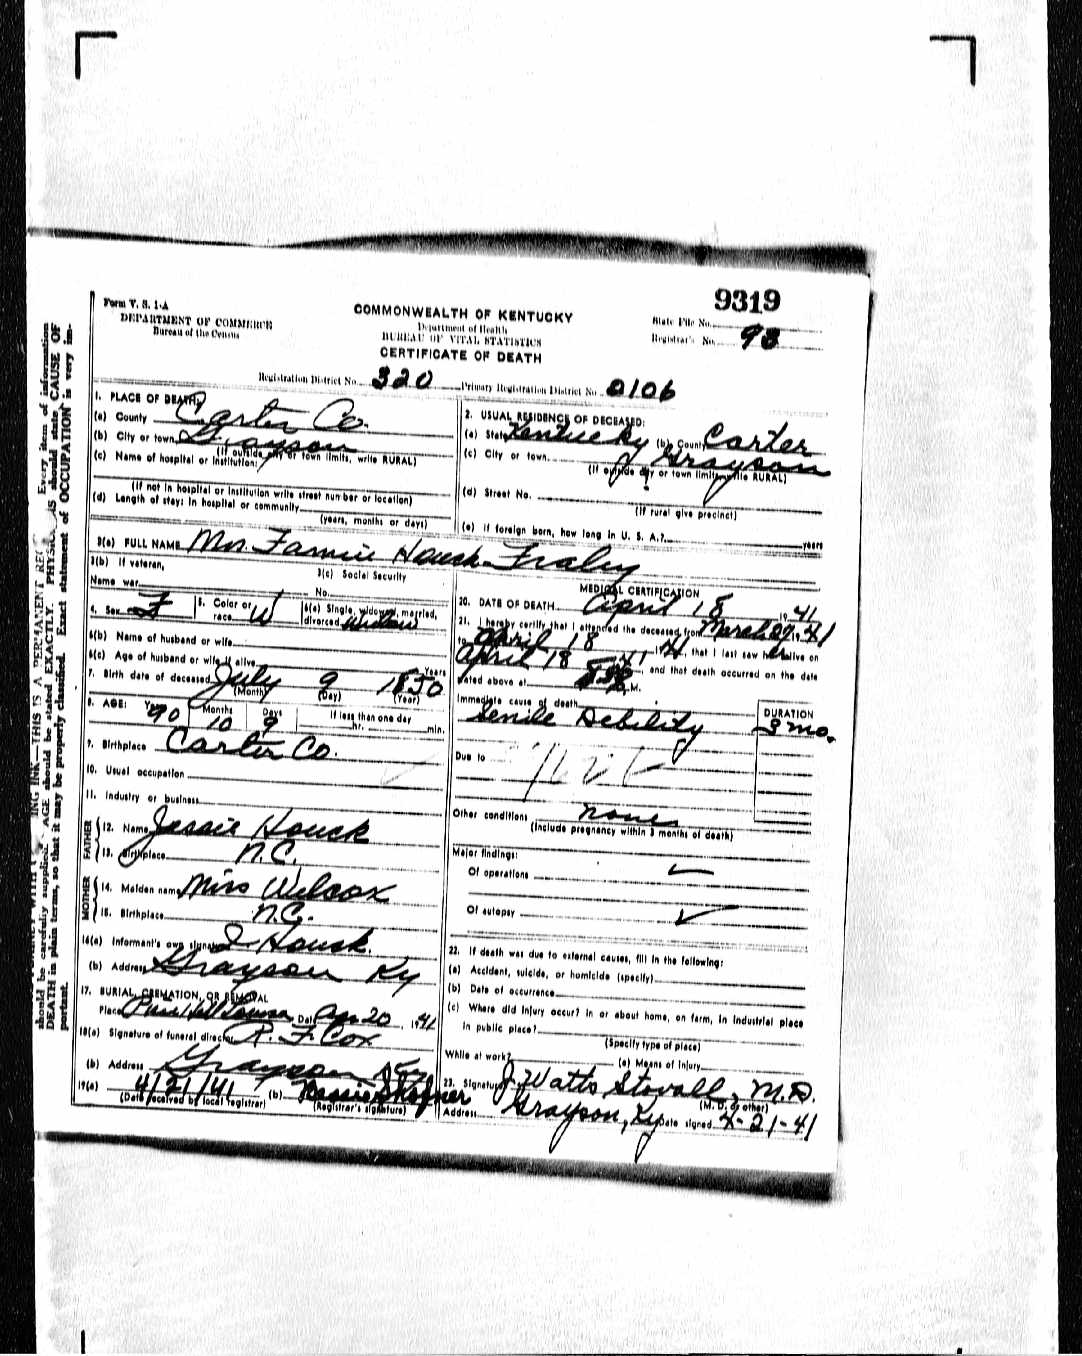 9319
Form V. S. 1-A
DEPARTMENT OF COMMERCE
Bureau of the Census
COMMONWEALTH OF KENTUCKY
Department of Health
BUREAU OF VITAL STATISTICS
CERTIFICATE OF DEATH
State File No.
Registrar's No. 93
Registration District No. 320 Primary Registration District No. 0106
1. PLACE OF DEATH:
(a) County Carter Co.
(b) City or town Grayson
(If outside city or town limits, write RURAL)
(c) Name of hospital or institution:
(If not in hospital or institution write street number or location)
(d) Length of stay: in hospital or community
(years, months or days)
2. USUAL RESIDENCE OF DECEASED:
(a) State Kentucky (b) County Carter
(c) City or town Grayson
(If outside city or town limits, write RURAL)
(d) Street No.
(If rural give precinct)
(e) If foreign born, how long in U. S. A.? years
3(a) FULL NAME Mrs. Fannie Houck Fraley
3(b) If veteran,
Name war
3(c) Social Security
No.
4. Sex F 5. Color or race W 6(a) Single, widowed, married, divorced Widow
6(b) Name of husband or wife
6(c) Age of husband or wife if alive Years
7. Birth date of deceased July 9 1850
(Month) (Day) (Year)
8. AGE: Years 90 Months 10 Days 9 If less than one day hr. min.
9. Birthplace Carter Co.
10. Usual occupation
11. Industry or business
FATHER
12. Name Jessie Houck
13. Birthplace N.C.
MOTHER
14. Maiden name Miss Wilcox
15. Birthplace N.C.
16(a) Informant's own signature J Houck.
(b) Address Grayson Ky
17. BURIAL, CREMATION, OR REMOVAL
Place Date Apr 20, 1941
18(a) Signature of funeral director R. F. Cox
(b) Address Grayson Ky
19(a) 4/21/41 (b)
(Date received by local registrar) (Registrar's signature)
MEDICAL CERTIFICATION
20. DATE OF DEATH April 18 1941
21. I hereby certify that I attended the deceased from March 27, 1941
to April 18 1941, that I last saw her alive on
April 18 1941, and that death occurred on the date
stated above at M.
Immediate cause of death
Senile Debility
DURATION
3 mo.
Due to
Other conditions None
(Include pregnancy within 3 months of death)
Major findings:
Of operations
Of autopsy
22. If death was due to external causes, fill in the following:
(a) Accident, suicide, or homicide (specify)
(b) Date of occurrence
(c) Where did injury occur? in or about home, on farm, in industrial place
in public place?
(Specify type of place)
While at work? (e) Means of injury
23. Signature J Watts Stovall, M.D.
(M. D. or other)
Address Grayson, Ky Date signed 4-21-41
THIS IS A PERMANENT Every item of information
should be carefully supplied. AGE should be stated EXACTLY. should state CAUSE OF
DEATH in plain terms, so that it may be properly classified. Exact statement of OCCUPATION is very im-
portant.